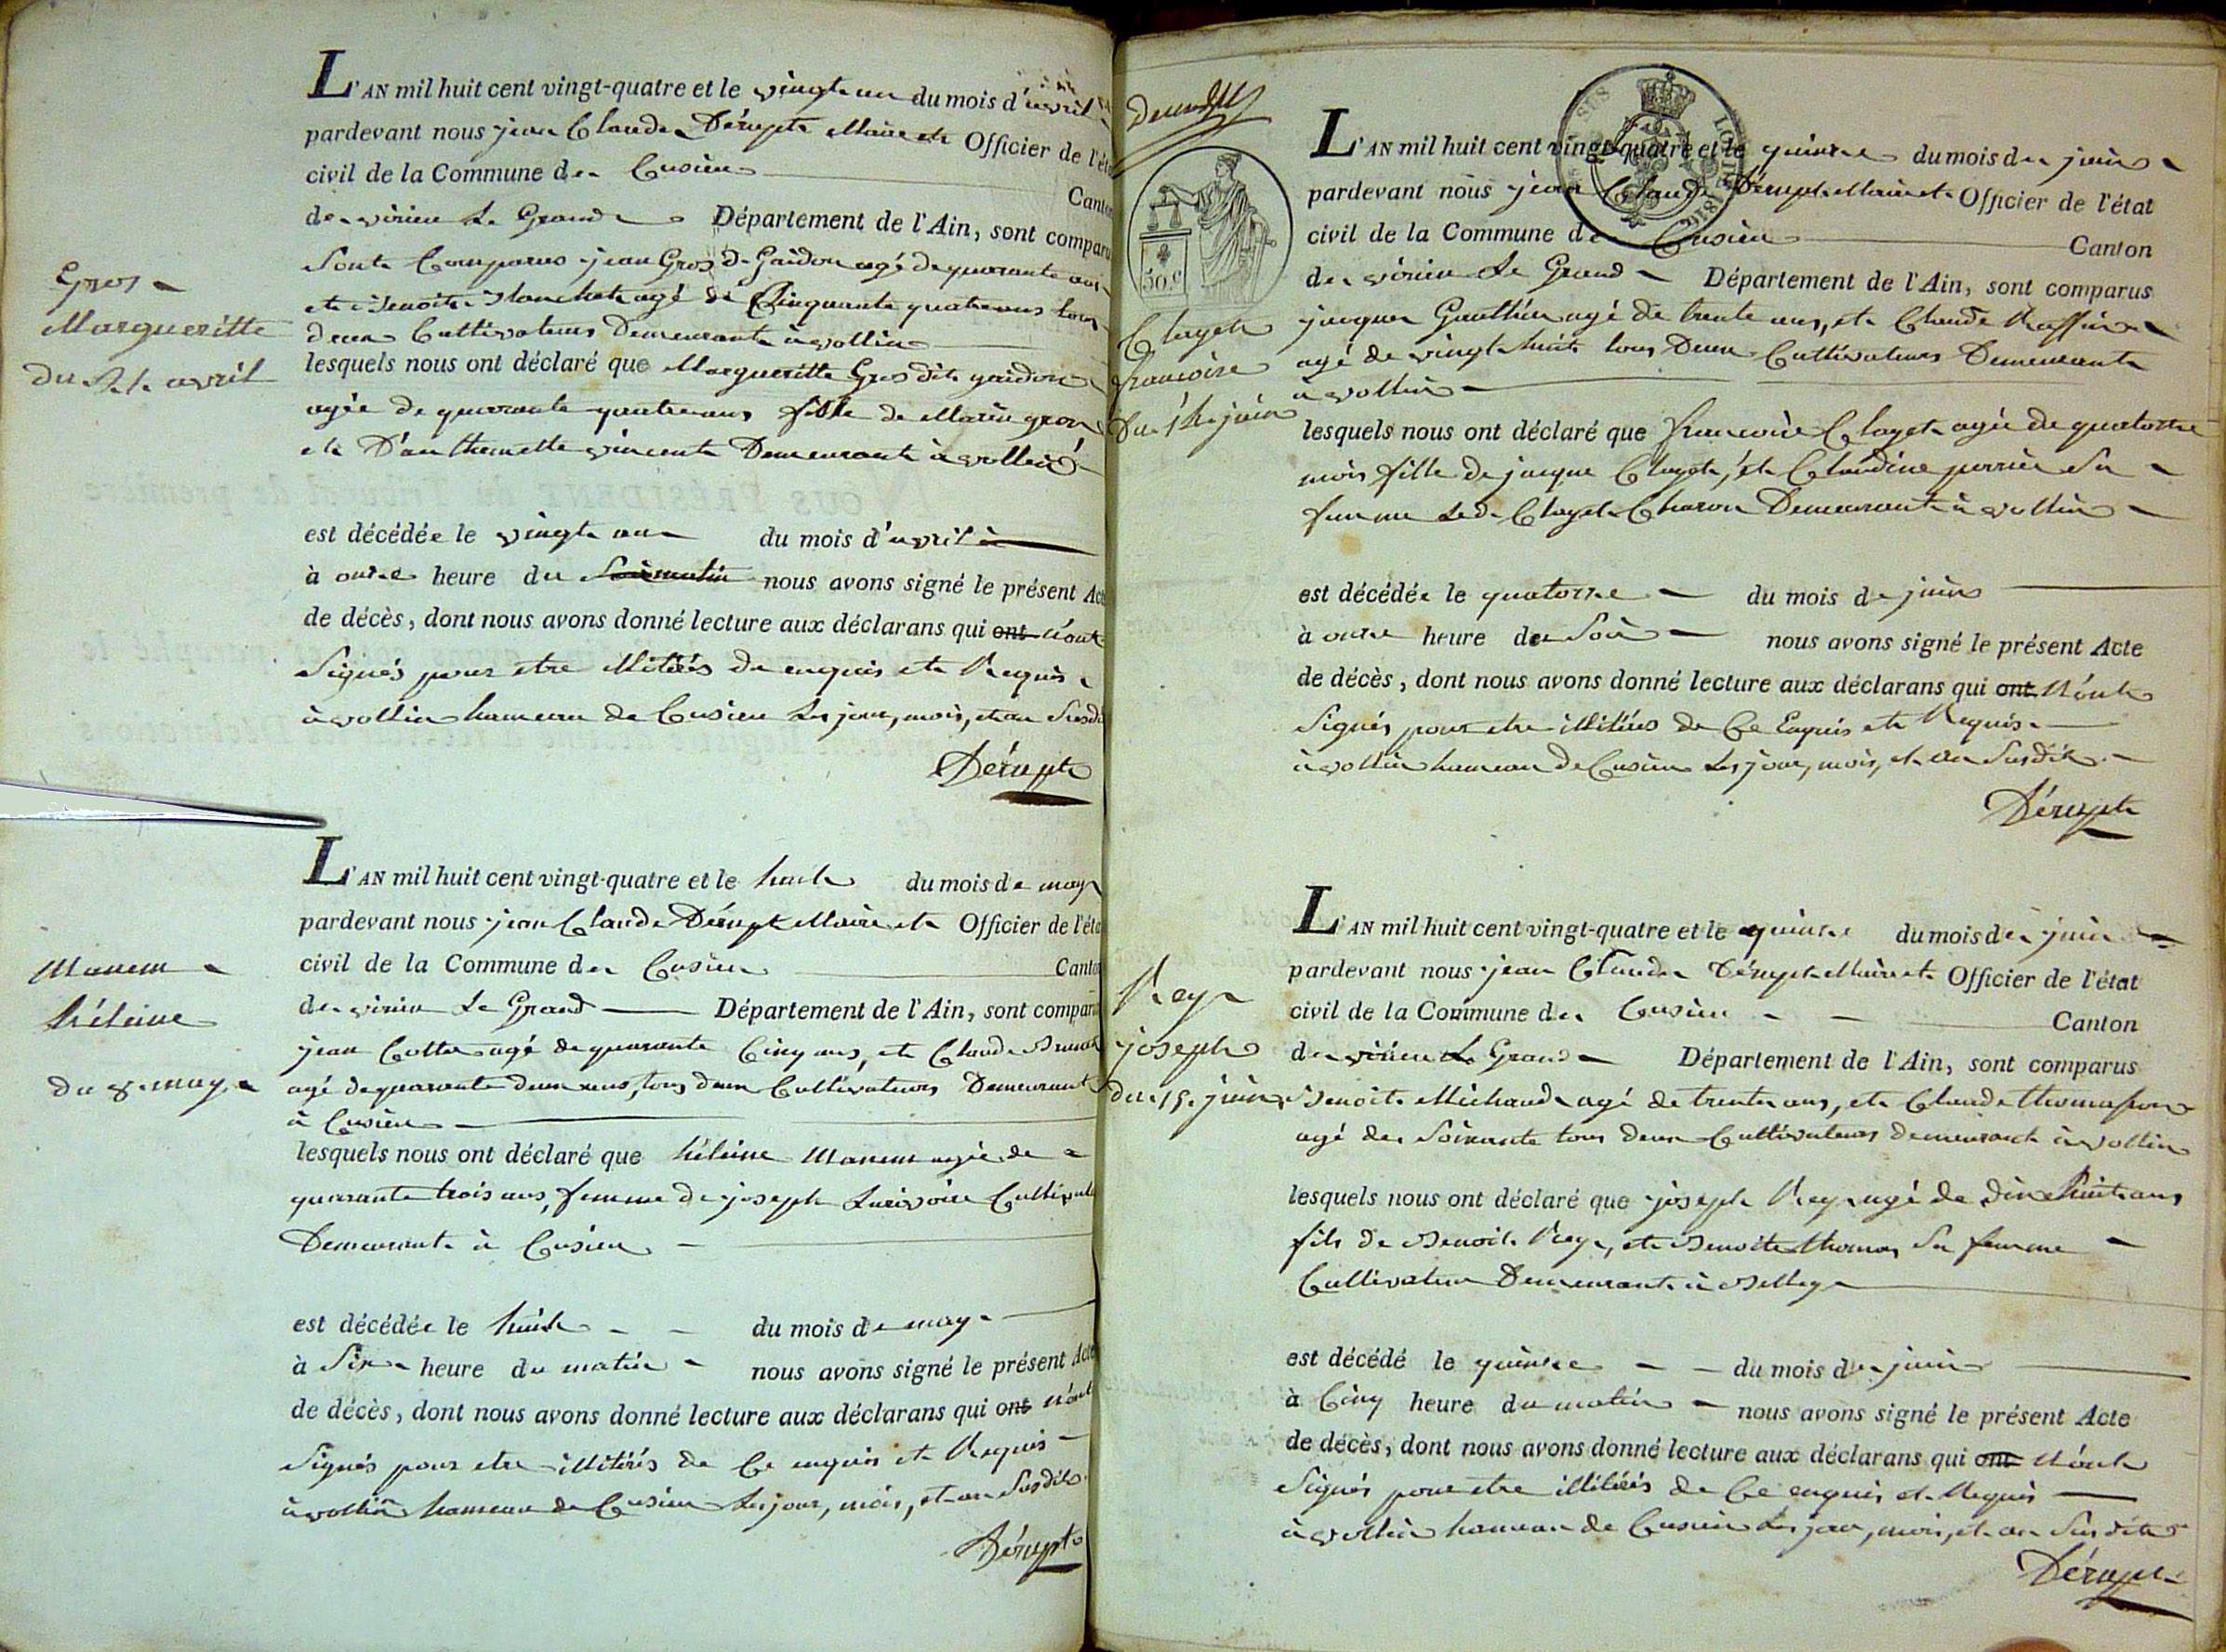 L'AN mil huit cent vingt-quatre et le vingt un du mois d'avril
pardevant nous jean Claude Dérupt Maire et Officier de l'éta
civil de la Commune de Cusieu Canton
de virieu Le Grand Département de l'Ain, sont comparu
Sont Comparus jean Gros d. Gaidon agé de quarante ans
et Benoit Blanchet agé de Cinquante quatre ans tous
deux Cultivateurs Demeurant à vollin
Gros
Margueritte
du 21 avril
lesquels nous ont déclaré que Margueritte Gros dite gaidon
agée de quarante quatre ans fille de Marin gros
et D'anthemette vincent Demeurant à vollin
est décédée le vingt un du mois d'avril
à onze heure du matin nous avons signé le présent Acte
de décès, dont nous avons donné lecture aux déclarans qui ont n'ont
Signés pour etre illitérés de enquis et Requis
à vollin hameau de Cusieu les jour, mois, et an Susdit
Dérupt
L'AN mil huit cent vingt-quatre et le huit du mois de may
pardevant nous jean Claude Dérupt Maire et Officier de l'éta
civil de la Commune de Cusieu Canton
de virieu Le Grand Département de l'Ain, sont comparu
jean Cottin agé de quarante Cinq ans, et Claude
agé de quarante deux ans, tous deux Cultivateurs Demeurant
à Cusieu
Manem
héleine
du 8 may
lesquels nous ont déclaré que héleine Manem agée de
quarante trois ans, femme de joseph Cultivateur
Demeurant à Cusieu
est décédée le huit du mois de may
à Six heure du matin nous avons signé le présent Acte
de décès, dont nous avons donné lecture aux déclarans qui ont n'ont
Signés pour etre illitérés de Ce enquis et Requis
à vollin hameau de Cusieu les jour, mois, et an Susdits
Dérupt
50.c
L'AN mil huit cent vingt-quatre et le quinze du mois de juin
pardevant nous jean Claude Dérupt Maire et Officier de l'état
civil de la Commune de Cusieu Canton
de virieu Le Grand Département de l'Ain, sont comparus
jacques Gauthier agé de trente ans, et Claude Raffin
agé de vingt huit tous Deux Cultivateurs Demeurant
à vollin
Clayet
francoise
Du 14 juin
lesquels nous ont déclaré que francoise Clayet agée de quatorze
mois fille de jacque Clayet, et Claudine perrier Sa
femme Led. Clayet Charon Demeurant à vollin
est décédée le quatorze du mois de juin
à onze heure du Soir nous avons signé le présent Acte
de décès, dont nous avons donné lecture aux déclarans qui ont N'ont
Signés pour etre illitérés de Ce Enquis et Requis
à vollin hameau de Cusieu les jour, mois, et an Susdit
Dérupt
L'AN mil huit cent vingt-quatre et le quinze du mois de juin
pardevant nous jean Claude Dérupt Maire et Officier de l'état
civil de la Commune de Cusieu Canton
de virieu Le Grand Département de l'Ain, sont comparus
Benoit Michaud agé de trente ans, et Claude thomasson
agé de Soixante tous deux Cultivateurs demeurant à vollin
Rey
joseph
du 15 juin
lesquels nous ont déclaré que joseph Rey agé de dix huit ans
fils de Benoit Rey, et Benoite thomas Sa femme
Cultivateur Demeurant à Belley
est décédé le quinze du mois de juin
à Cinq heure du matin nous avons signé le présent Acte
de décès, dont nous avons donné lecture aux déclarans qui ont N'ont
Signés pour etre illitérés de Ce enquis et Requis
à vollin hameau de Cusieu les jour, mois, et an Susdits
Dérupt